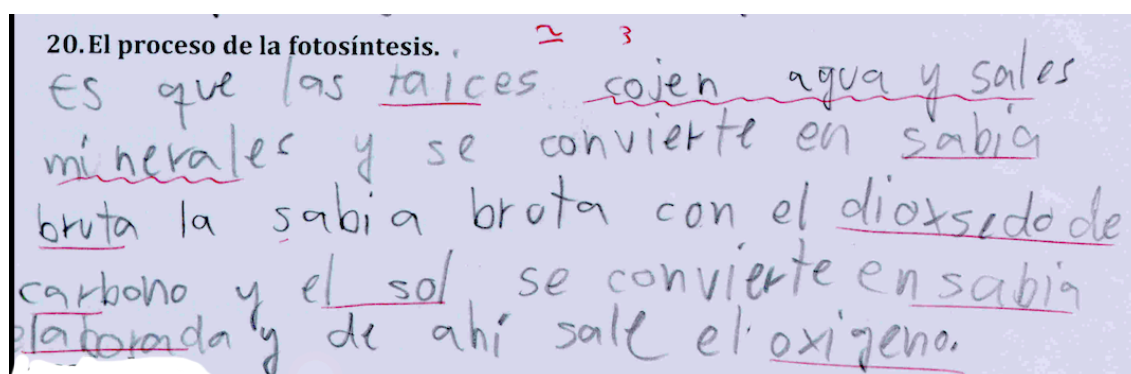 20. El proceso de la fotosíntesis. ≃ 3
Es que las raices cojen agua y sales
minerales y se convierte en sabia
bruta la sabia brota con el dioxsedo de
carbono y el sol se convierte en sabia
elaborada y de ahí sale el oxigeno.